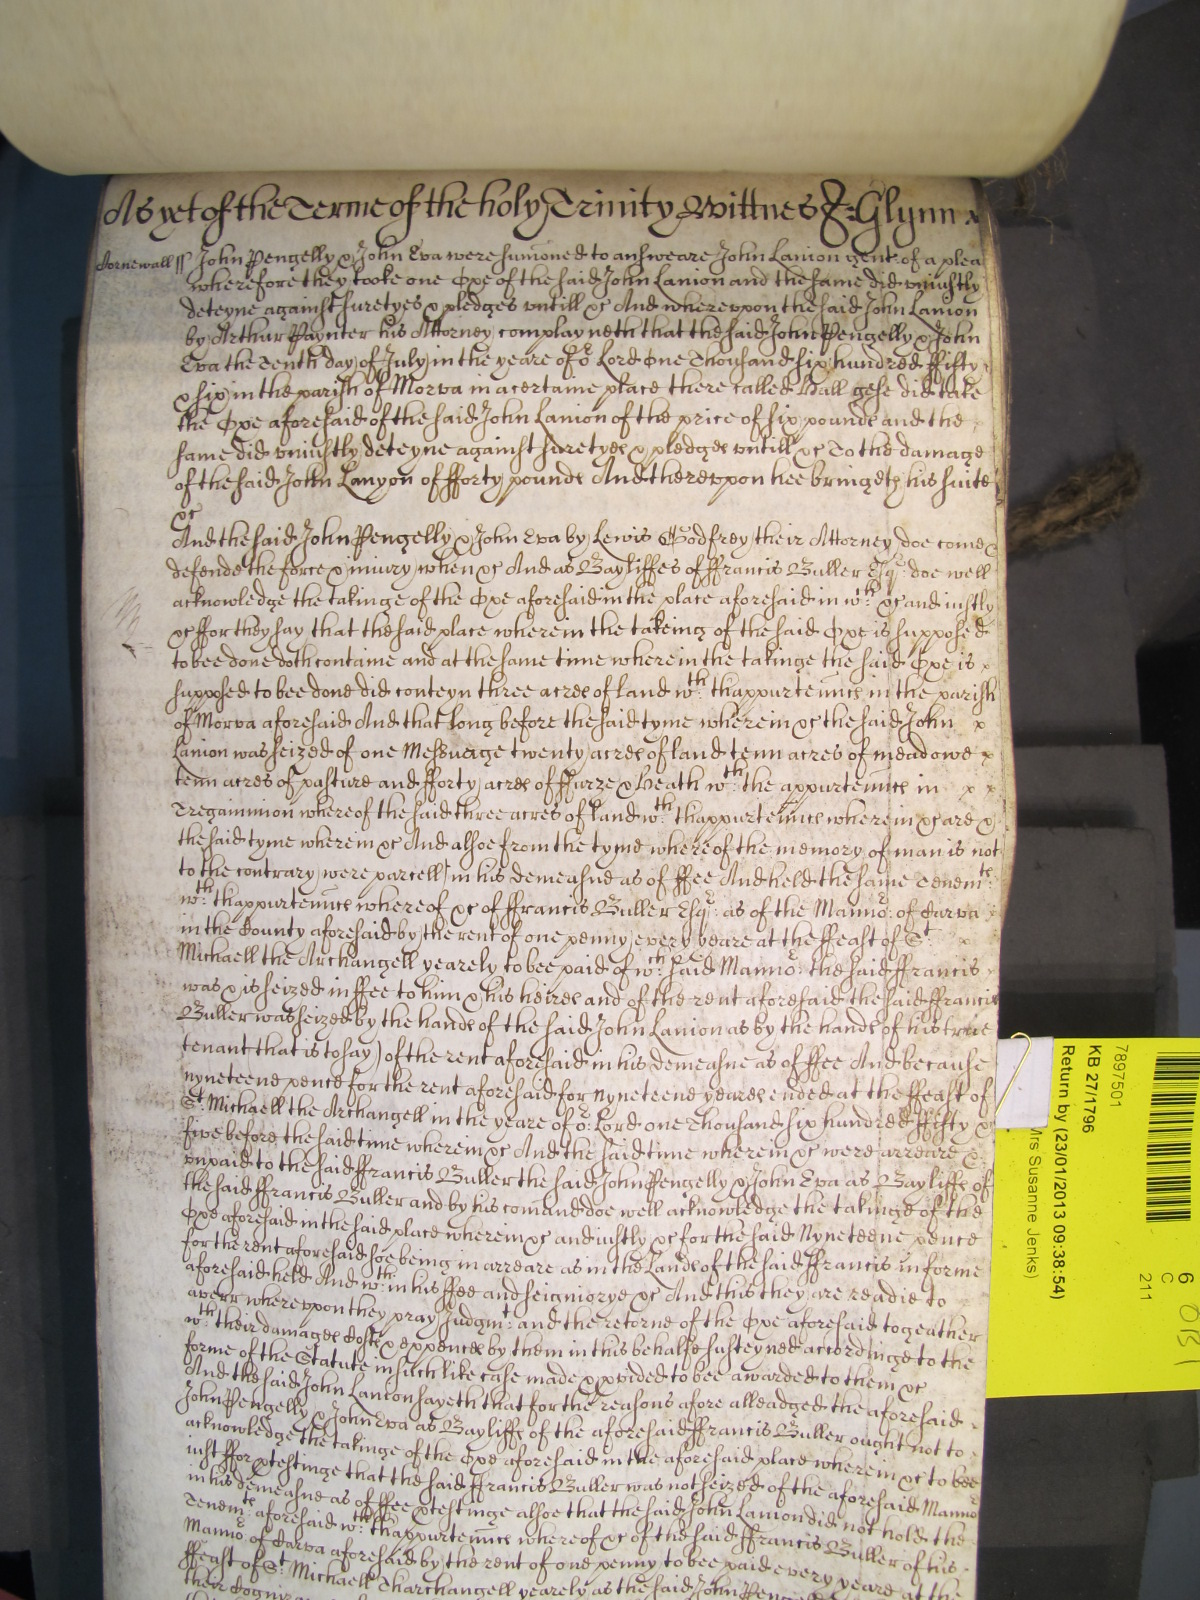 As yet of the Terme of the holy Trinity Wittnes J: Glynn
Cornewall ss John Pengelly & John Eva were sumoned to answeare John Lanion gent: of a plea
wherefore they tooke one Oxe of the said John Lanion and the same did uniustly
deteyne against suretyes & pledges untill &c And whereupon the said John Lanion
by Arthur Paynter his Attorney complayneth that the said John Pengelly & John
Eva the Tenth day of July in the yeare of or Lord One Thousand six hundred ffifty
& six in the parish of Morva in a certaine place there called Hall gese did take
the Oxe aforesaid of the said John Lanion of the price of six pounds and the
same did uniustly deteyne against suretyes & pledges untill &c To the damage
of the said John Lanyon of fforty pounds And thereupon hee bringeth his suite
&c
And the said John Pengelly & John Eva by Lewis Godfrey their Attorney doe come &
defende the force & iniury when &c And as Bayliffes of ffrancis Buller Esqr: doe well
acknowledge the takinge of the Oxe aforesaid in the place aforesaid in wch: &c and iustly
&c ffor they say that the said place wherein the takeing of the said Oxe is supposed
to bee done doth containe and at the same time wherein the takinge the said Oxe is
supposed to bee done did conteyn three acres of land wth: thappurtennces in the parish
of Morva aforesaid And that Long before the said tyme wherein &c the said John
Lanion was seized of one Messuage twenty acres of land tenn acres of meadowe
tenn acres of pasture and fforty acres of ffurze & Heath wth: the appurtennces in
Tregaminion whereof the said three acres of land wth: thappurtennces wherein &c are &
the said tyme wherein &c And alsoe from the tyme whereof the memory of man is not
to the contrary were parcell in his demeasne as of ffee And held the same Tenemts:
wth: thappurtennces whereof &c of ffrancis Buller Esqr: as of the Mannor: of Carva
in the County aforesaid by the rent of one penny every yeare at the ffeast of St:
Michaell the Archangell yearely to bee paid of wch: said Mannor: the said ffrancis
was & is seized in ffee to him & his heires and of the rent aforesaid the said ffrancis
Buller was seized by the hands of the said John Lanion as by the hands of his true
tenant that is to say) of the rent aforesaid in his demeasne as of ffee And because
nyneteene pence for the rent aforesaid for nyneteene yeares ended at the ffeast of
St: Michaell the Archangell in the yeare of or: Lord one thousand six hundred ffifty &
five before the said time wherein &c And the said time wherein &c were arreare &
unpaid to the said ffrancis Buller the said John Pengelly & John Eva as Bayliffs of
the said ffrancis Buller and by his comand doe well acknowledge the takinge of the
Oxe aforesaid in the said place wherein &c and iustly &c for the said Nyneteene pence
for the rent aforesaid soe being in arreare as in the Lands of the said ffrancis in forme
aforesaid held And wthin his ffee and seigniorye &c And this they are readie to
averr whereupon they pray Judgmt: and the retorne of the Oxe aforesaid togeather
wth: their damages Costs & expences by them in this behalfe susteyned accordinge to the
forme of the Statute in such like case made & pvided to bee awarded to them &c
And the said John Lanion sayeth that for the reasons afore alleadged the aforesaid
John Pengelly & John Eva as Bayliffs of the aforesaid ffrancis Buller ought not to
acknowledge the takinge of the Oxe aforesaid in the aforesaid place wherein &c to bee
iust ffor ptestinge that the said ffrancis Buller was not seized of the aforesaid Mannor
in his demeasne as of ffee ptestinge alsoe that the said John Lanion did not hold the
Tenemts: aforesaid wth: thappurtennces whereof &c of the said ffrancis Buller of his
Mannor: of Carva aforesaid by the rent of one penny to bee paid every yeare at the
ffeast of St: Michaell Tharchangell yearely as the said John Pengelly
their Cogniz
7897501
KB 27/1796
Return by (23/01/2013 09:38:54)
Mrs Susanne Jenks)
6
C
211